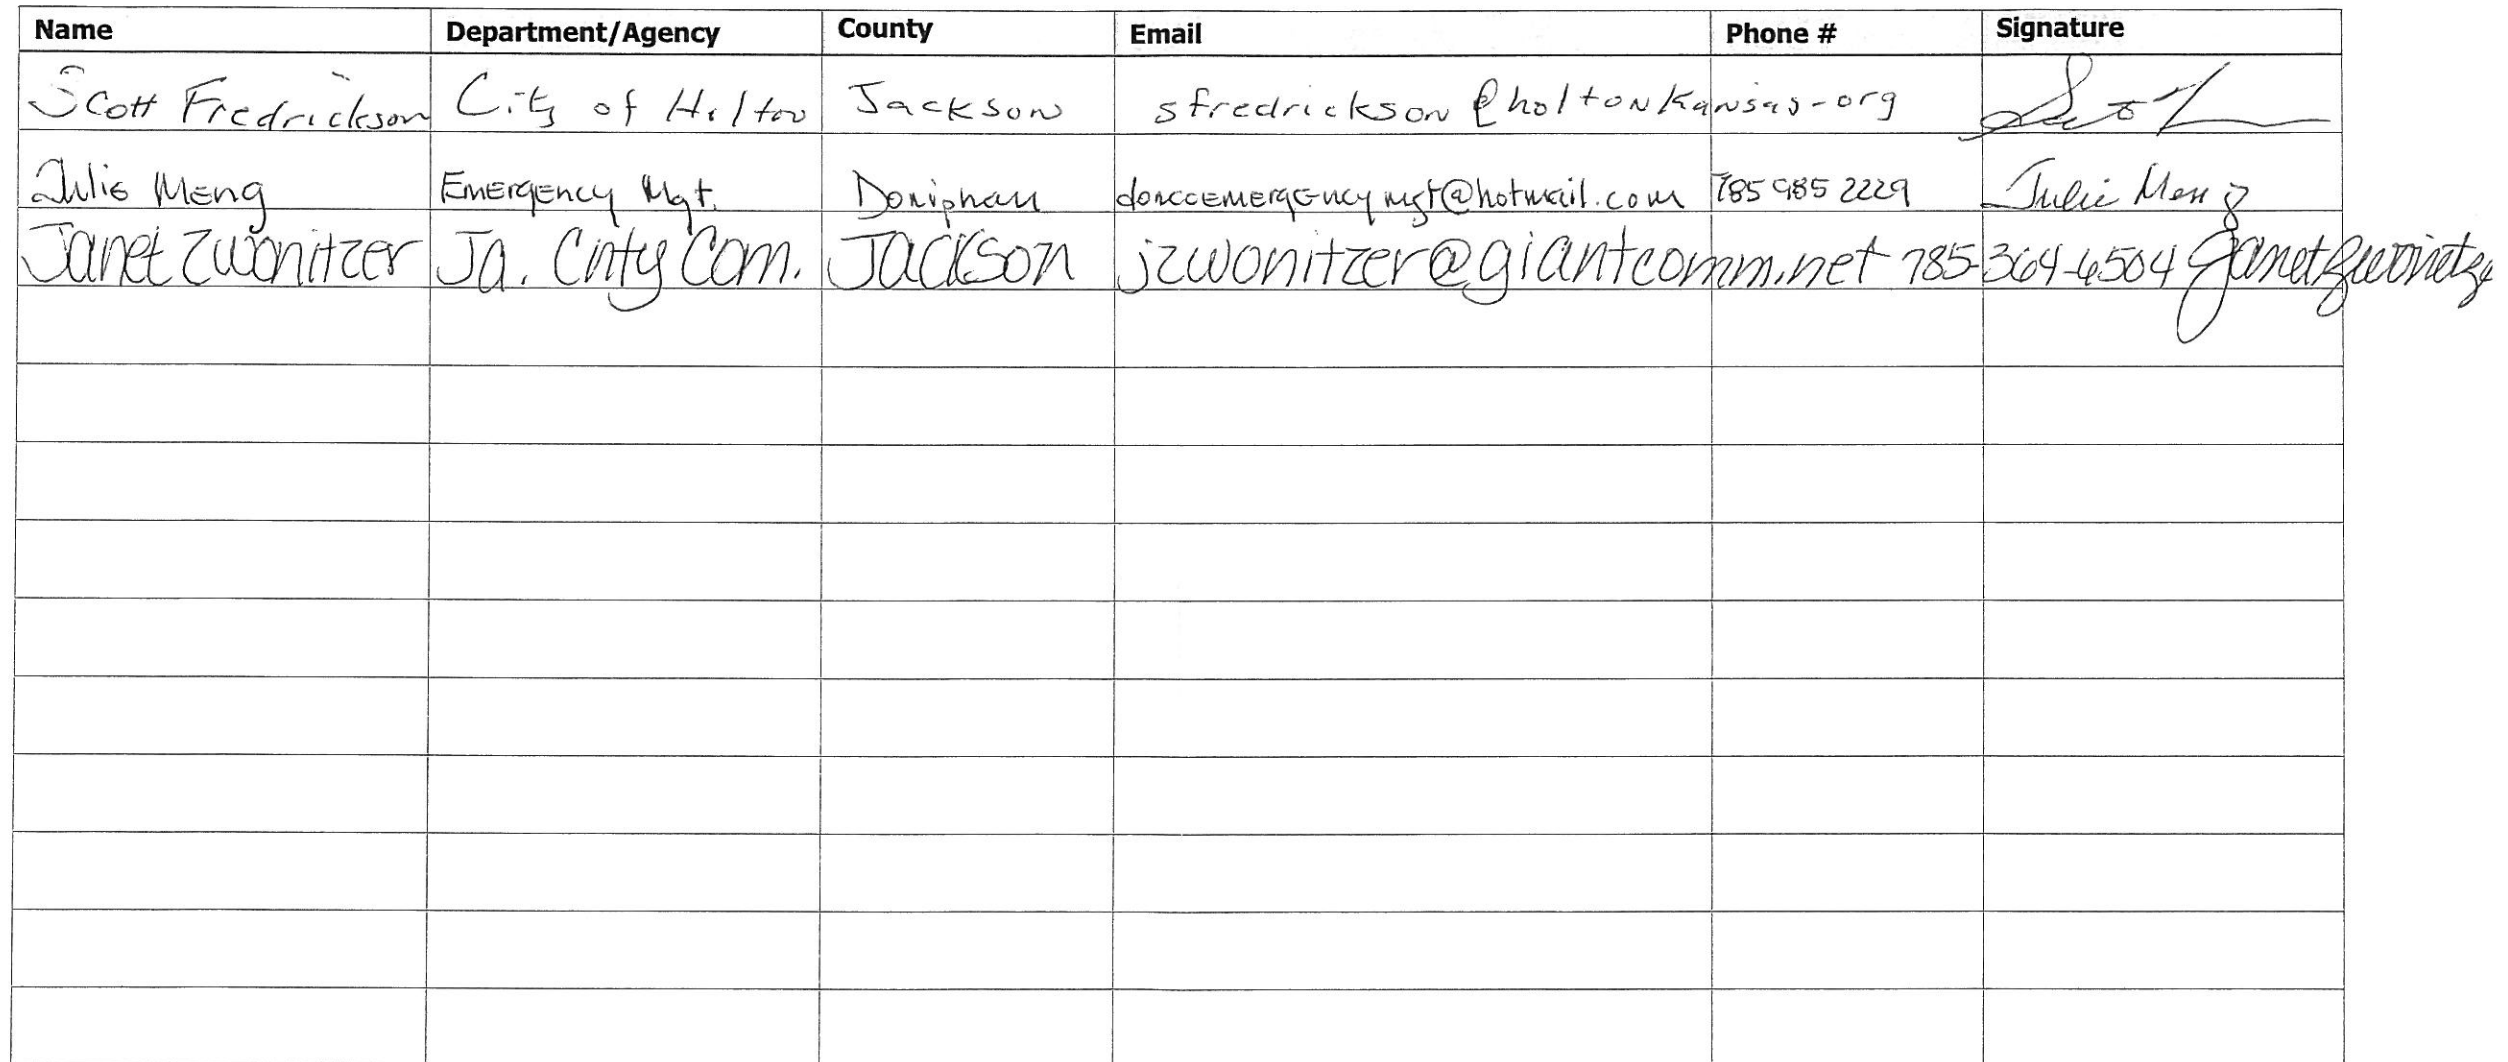 Name Department/Agency County Email Phone # Signature
Scott Fredrickson City of Holton Jackson sfredrickson@holtonkansas.org
Julie Meng Emergency Mgt. Doniphan 785 985 2229 Julie Meng
Janet Zwonitzer Ja. Cnty Com. Jackson jzwonitzer@giantcomm.net 785-364-6504 Janet Zwonitzer